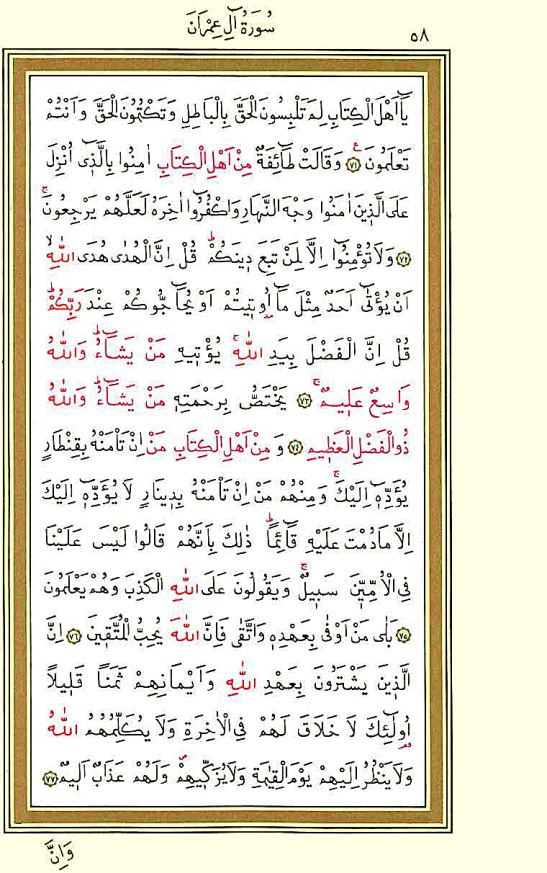 سُورَةُ اٰلِ عِمْرٰنَ
٥٨
يَٓا اَهْلَ الْكِتَابِ لِمَ تَلْبِسُونَ الْحَقَّ بِالْبَاطِلِ وَتَكْتُمُونَ الْحَقَّ وَاَنْتُمْ
تَعْلَمُونَ ۟ ﴿٧١﴾ وَقَالَتْ طَٓائِفَةٌ مِنْ اَهْلِ الْكِتَابِ اٰمِنُوا بِالَّذ۪ٓي اُنْزِلَ
عَلَى الَّذ۪ينَ اٰمَنُوا وَجْهَ النَّهَارِ وَاكْفُرُٓوا اٰخِرَهُ لَعَلَّهُمْ يَرْجِعُونَۚ
﴿٧٢﴾ وَلَا تُؤْمِنُٓوا اِلَّا لِمَنْ تَبِعَ د۪ينَكُمْۜ قُلْ اِنَّ الْهُدٰى هُدَى اللّٰهِۙ
اَنْ يُؤْتٰٓى اَحَدٌ مِثْلَ مَٓا اُو۫ت۪يتُمْ اَوْ يُحَٓاجُّوكُمْ عِنْدَ رَبِّكُمْۜ
قُلْ اِنَّ الْفَضْلَ بِيَدِ اللّٰهِۚ يُؤْت۪يهِ مَنْ يَشَٓاءُۜ وَاللّٰهُ
وَاسِعٌ عَل۪يمٌۚ ﴿٧٣﴾ يَخْتَصُّ بِرَحْمَتِه۪ مَنْ يَشَٓاءُۜ وَاللّٰهُ
ذُو الْفَضْلِ الْعَظ۪يمِ ﴿٧٤﴾ وَمِنْ اَهْلِ الْكِتَابِ مَنْ اِنْ تَأْمَنْهُ بِقِنْطَارٍ
يُؤَدِّه۪ٓ اِلَيْكَۚ وَمِنْهُمْ مَنْ اِنْ تَأْمَنْهُ بِد۪ينَارٍ لَا يُؤَدِّه۪ٓ اِلَيْكَ
اِلَّا مَا دُمْتَ عَلَيْهِ قَٓائِمًاۜ ذٰلِكَ بِاَنَّهُمْ قَالُوا لَيْسَ عَلَيْنَا
فِي الْاُمِّيّ۪نَ سَب۪يلٌۚ وَيَقُولُونَ عَلَى اللّٰهِ الْكَذِبَ وَهُمْ يَعْلَمُونَ
﴿٧٥﴾ بَلٰى مَنْ اَوْفٰى بِعَهْدِه۪ وَاتَّقٰى فَاِنَّ اللّٰهَ يُحِبُّ الْمُتَّق۪ينَ ﴿٧٦﴾ اِنَّ
الَّذ۪ينَ يَشْتَرُونَ بِعَهْدِ اللّٰهِ وَاَيْمَانِهِمْ ثَمَنًا قَل۪يلًا
اُو۬لٰٓئِكَ لَا خَلَاقَ لَهُمْ فِي الْاٰخِرَةِ وَلَا يُكَلِّمُهُمُ اللّٰهُ
وَلَا يَنْظُرُ اِلَيْهِمْ يَوْمَ الْقِيٰمَةِ وَلَا يُزَكّ۪يهِمْۖ وَلَهُمْ عَذَابٌ اَل۪يمٌ ﴿٧٧﴾
وَاِنَّ